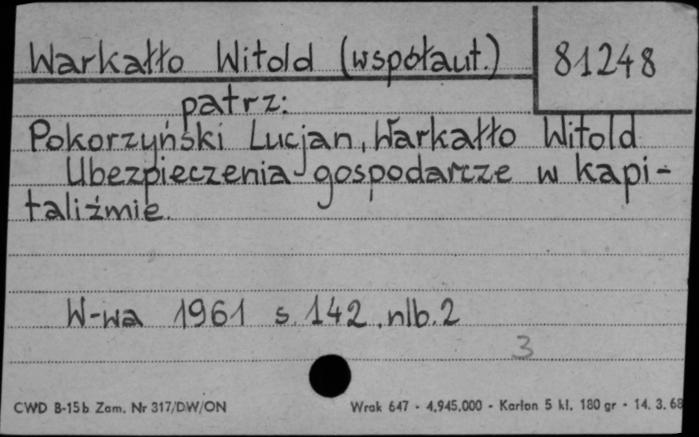 Warkałło Witold (współaut.) 81248
patrz:
Pokorzyński Lucjan, Warkałło Witold
Ubezpieczenia gospodarcze w kapi-
taliźmie.
W-wa 1961 s. 142, nlb. 2
3
CWD B-15b Zam. Nr 317/DW/ON Wrak 647 - 4.945.000 - Karton 5 kl. 180 gr - 14. 3. 68